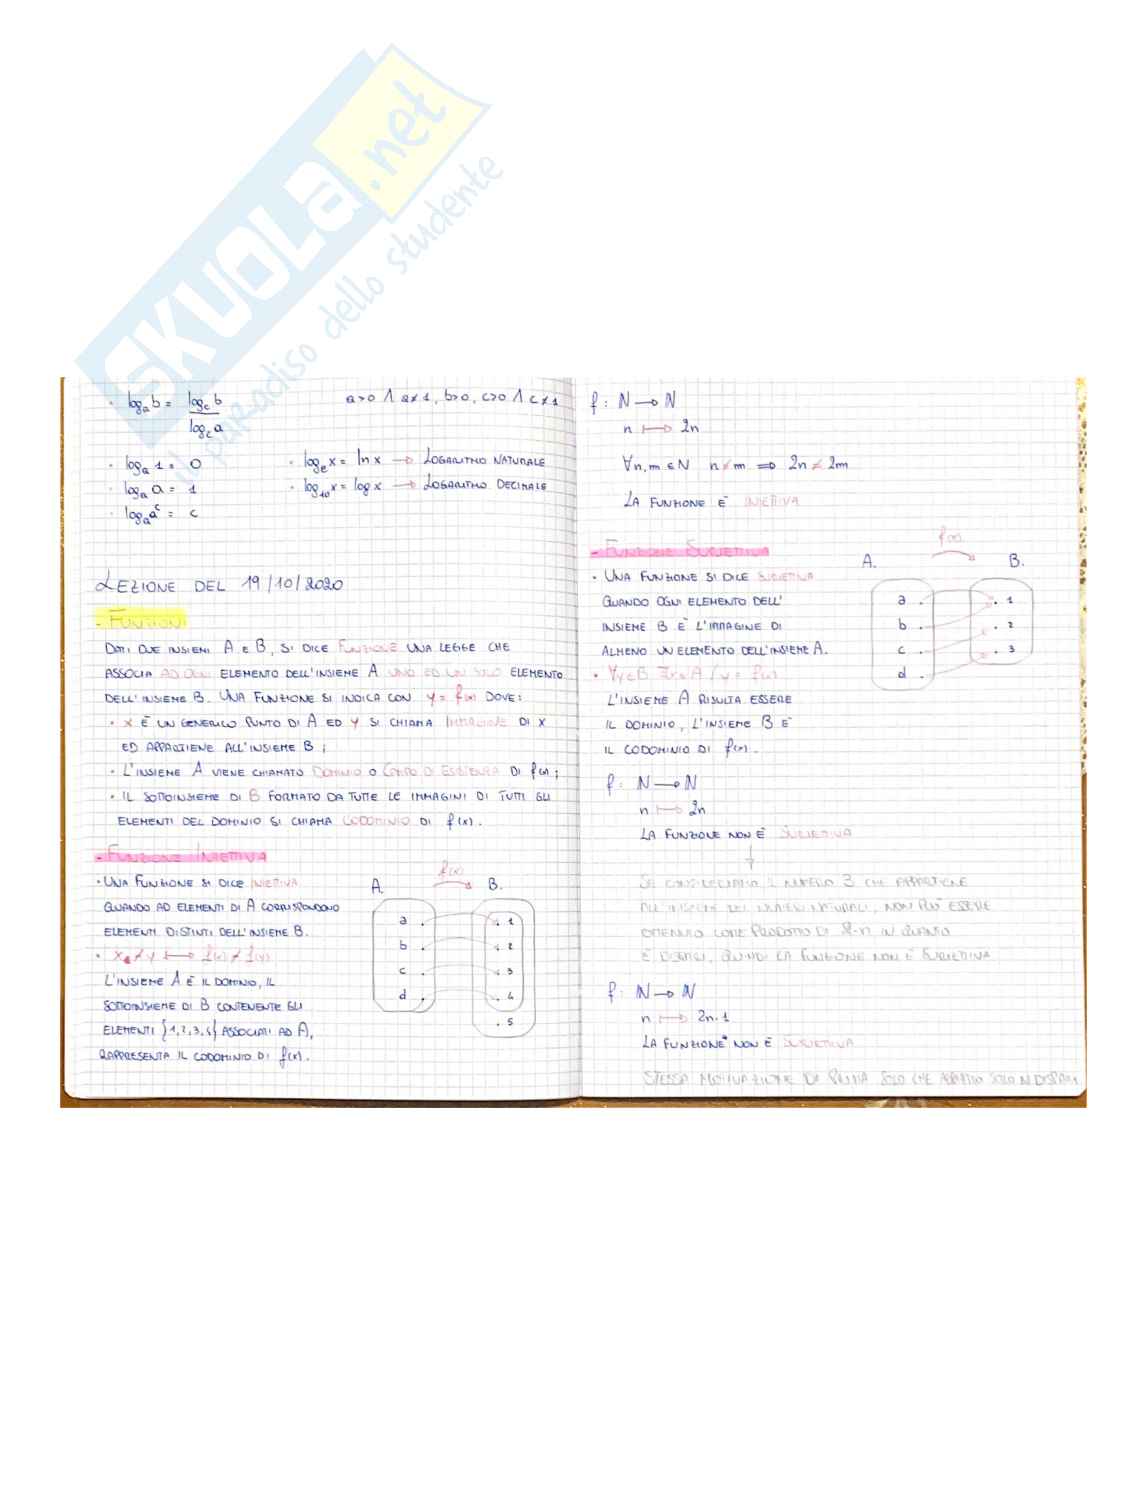 SKUOLA.net
il paradiso dello studente
· logₐb = log꜀b / log꜀a    a>0 ∧ a≠1, b>0, c>0 ∧ c≠1
· logₐ1 = 0
· logₐa = 1
· logₐaᶜ = c
· logₑx = ln x → LOGARITMO NATURALE
· log₁₀x = log x → LOGARITMO DECIMALE
LEZIONE DEL 19/10/2020
- FUNZIONI
DATI DUE INSIEMI A E B, SI DICE FUNZIONE UNA LEGGE CHE
ASSOCIA AD OGNI ELEMENTO DELL'INSIEME A UNO ED UN SOLO ELEMENTO
DELL'INSIEME B. UNA FUNZIONE SI INDICA CON y = f(x) DOVE:
· x È UN GENERICO PUNTO DI A ED y SI CHIAMA IMMAGINE DI X
ED APPARTIENE ALL'INSIEME B;
· L'INSIEME A VIENE CHIAMATO DOMINIO O CAMPO DI ESISTENZA DI f(x);
· IL SOTTOINSIEME DI B FORMATO DA TUTTE LE IMMAGINI DI TUTTI GLI
ELEMENTI DEL DOMINIO SI CHIAMA CODOMINIO DI f(x).
- FUNZIONE INIETTIVA
· UNA FUNZIONE SI DICE INIETTIVA
QUANDO AD ELEMENTI DI A CORRISPONDONO
ELEMENTI DISTINTI DELL'INSIEME B.
· x ≠ y ⟼ f(x) ≠ f(y)
L'INSIEME A È IL DOMINIO, IL
SOTTOINSIEME DI B CONTENENTE GLI
ELEMENTI {1,2,3,4} ASSOCIATI AD A,
RAPPRESENTA IL CODOMINIO DI f(x).
f(x)
A    B.
a . . 1
b . . 2
c . . 3
d . . 4
. 5
f: N → N
n ⟼ 2n
∀n,m ∈ N   n ≠ m ⇒ 2n ≠ 2m
LA FUNZIONE È INIETTIVA
- FUNZIONE SURIETTIVA
· UNA FUNZIONE SI DICE SURIETTIVA
QUANDO OGNI ELEMENTO DELL'
INSIEME B È L'IMMAGINE DI
ALMENO UN ELEMENTO DELL'INSIEME A.
· ∀y∈B ∃x∈A / y = f(x)
L'INSIEME A RISULTA ESSERE
IL DOMINIO, L'INSIEME B È
IL CODOMINIO DI f(x).
f(x)
A.    B.
a . . 1
b . . 2
c . . 3
d .
f: N → N
n ⟼ 2n
LA FUNZIONE NON È SURIETTIVA
SE CONSIDERIAMO IL NUMERO 3 CHE APPARTIENE
ALL'INSIEME DEI NUMERI NATURALI, NON PUÒ ESSERE
OTTENUTO COME PRODOTTO DI 2·n IN QUANTO
È DISPARI, QUINDI LA FUNZIONE NON È SURIETTIVA
f: N → N
n ⟼ 2n·1
LA FUNZIONE NON È SURIETTIVA
STESSA MOTIVAZIONE DI PRIMA SOLO CHE SOLO N DISPARI